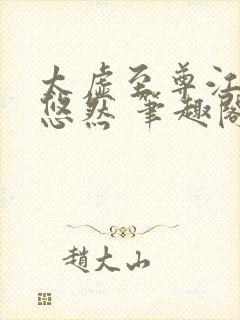 太虚至尊江
悠然 筆趣阁
趙大山